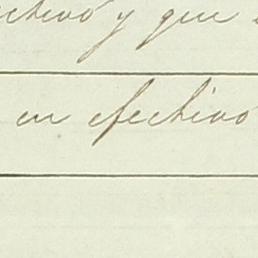 efectivo y que
en efectivo